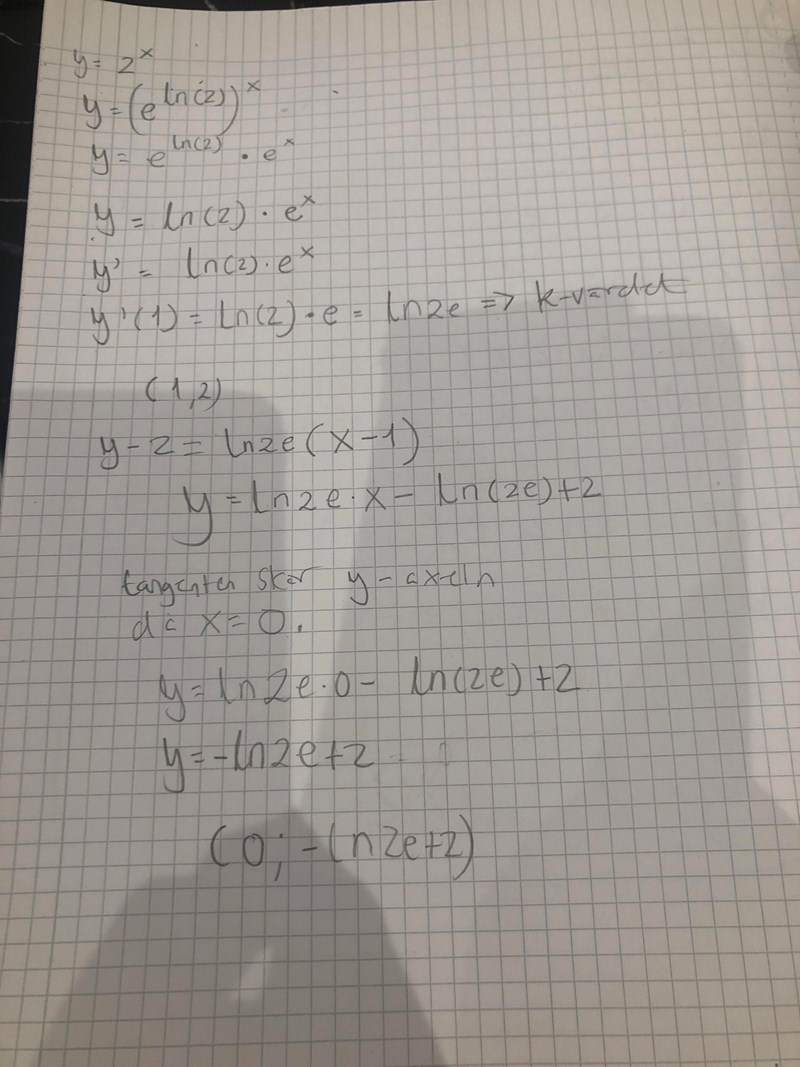 y = 2^x
y = (e^ln(2))^x
y = e^ln(2) · e^x
y = ln(2) · e^x
y' = ln(2) · e^x
y'(1) = ln(2) · e = ln2e => k-värdet
(1,2)
y-2 = ln2e(x-1)
y = ln2e · x - ln(2e)+2
tangenten skär y-axeln
då x=0.
y = ln2e · 0 - ln(2e)+2
y = -ln2e+2
(0; -ln2e+2)